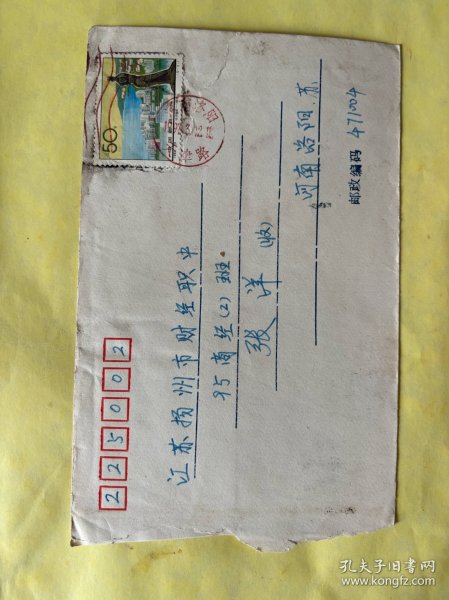 225002
江苏扬州市财经职中
95商经(2)班.
张洋 (收)
河南洛阳.苏
邮政编码 471004
50
孔夫子旧书网
www.kongfz.com